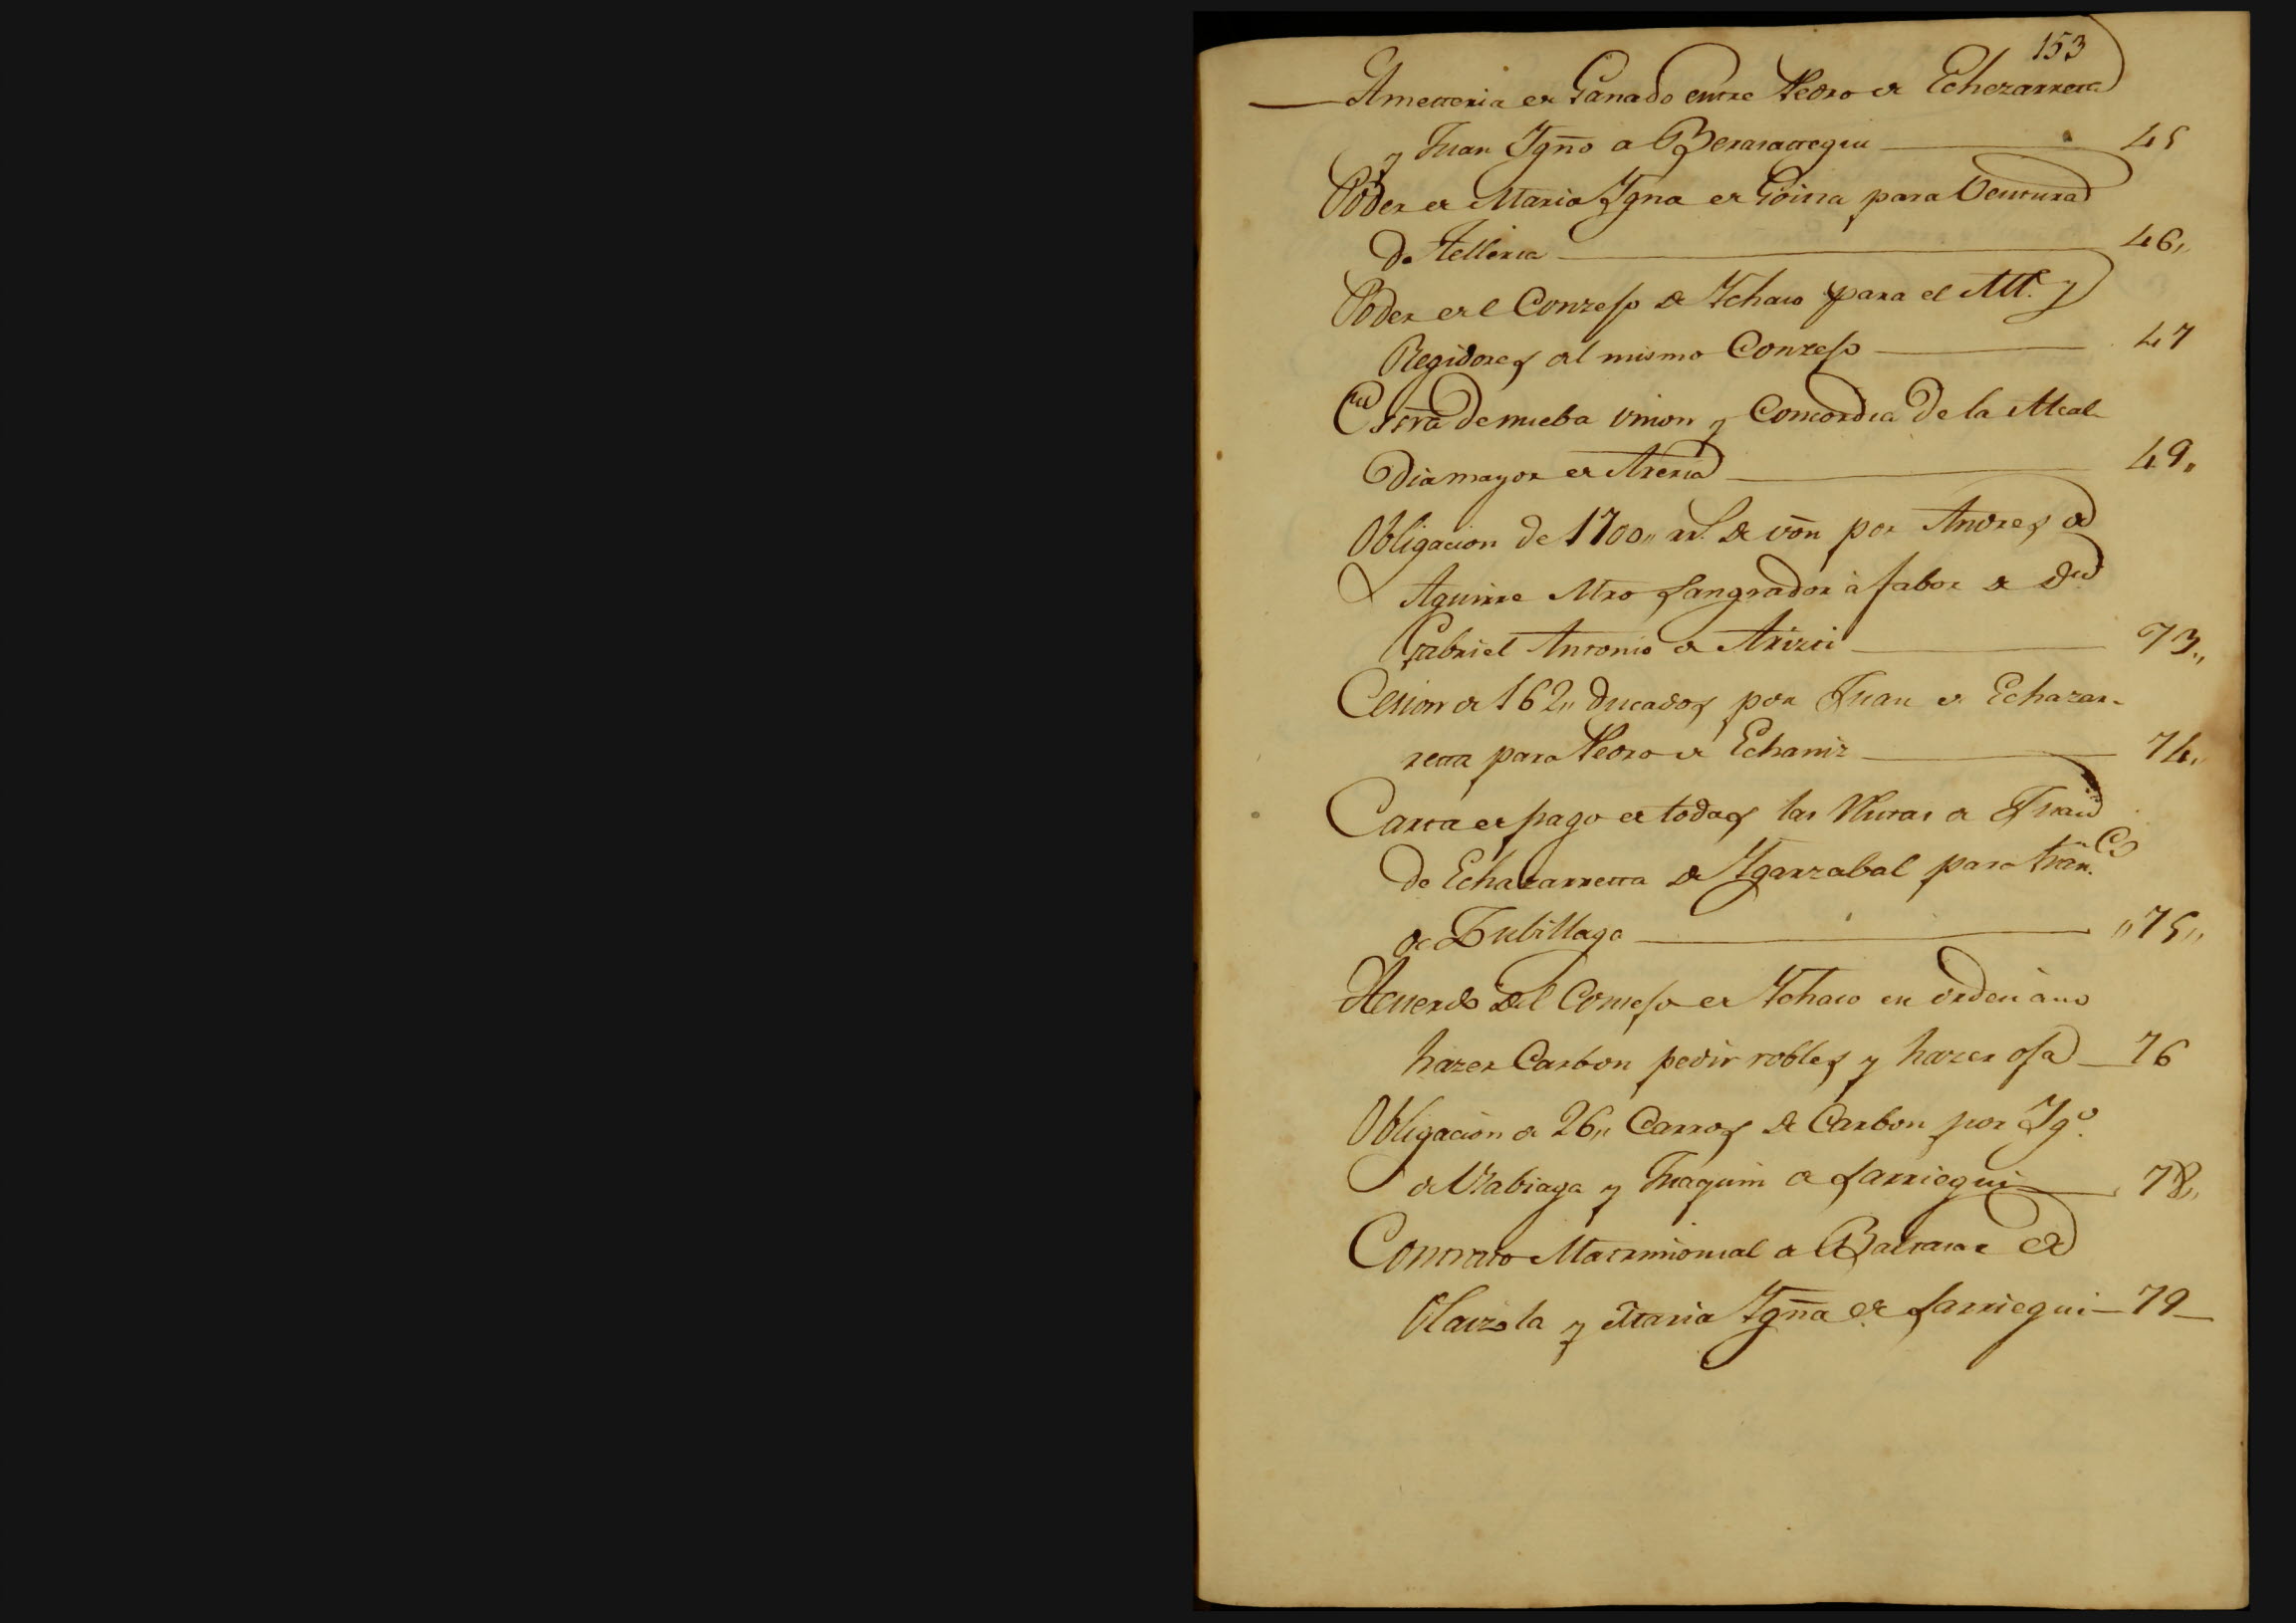 153
Ametteria de Ganado entre Pedro de Echezarreta
y Juan Ygño de Berasategui 45
Poder de Maria Ygna de Goiria para Ventura
de Telleria 46,,
Poder del Conzejo de Ychaso para el Alle. y
Regidores del mismo Conzejo 47
Essra de nueba union y Concordia de la Alcal-
dia mayor de Areria 49,,
Obligacion de 1700,, rrs. de von por Andres de
Aguirre Mro sangrador à fabor de Dn
Gabriel Antonio de Arizti 73,,
Cesion de 162,, ducados por Juan de Echazar-
reta para Pedro de Echaniz 74,,
Carta de pago de todas las de Juan
de Echazarreta de Ygarzabal para Fran.co
de Zubillaga ,,75,,
Acuerdo del Consejo de Ychaso en orden à no
hazer Carbon pedir robles y hazer osa 76
Obligacion de 26,, Carros de Carbon por Ygo.
de Urabiaga y Juaquin de Sarriegui 78,,
Contrato Matrimonial de Baltasar de
Olaizola y Maria Ygña de Sarriegui 79